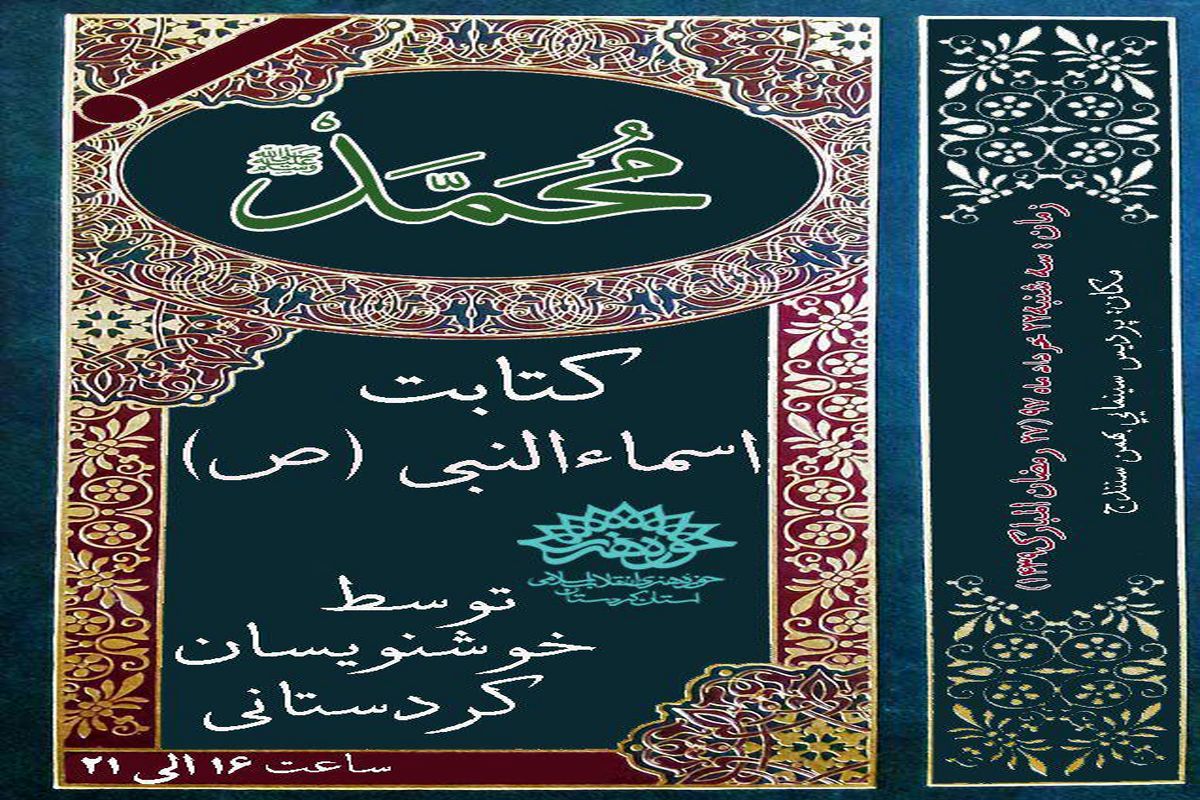 محمد ﷺ
کتابت
اسماءالنبی (ص)
حوزه هنری
حوزه هنری انقلاب اسلامی
استان کردستان
توسط
خوشنویسان
کردستانی
ساعت ۱۶ الی ۲۱
زمان : سه شنبه ۲۲ خرداد ماه ۹۷ (۲۷ رمضان المبارک ۱۴۳۹)
مکان: پردیس سینمایی بهمن سنندج